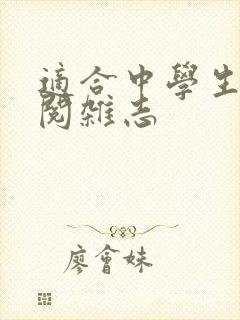 適合中學生
閱雜志
廖會妹